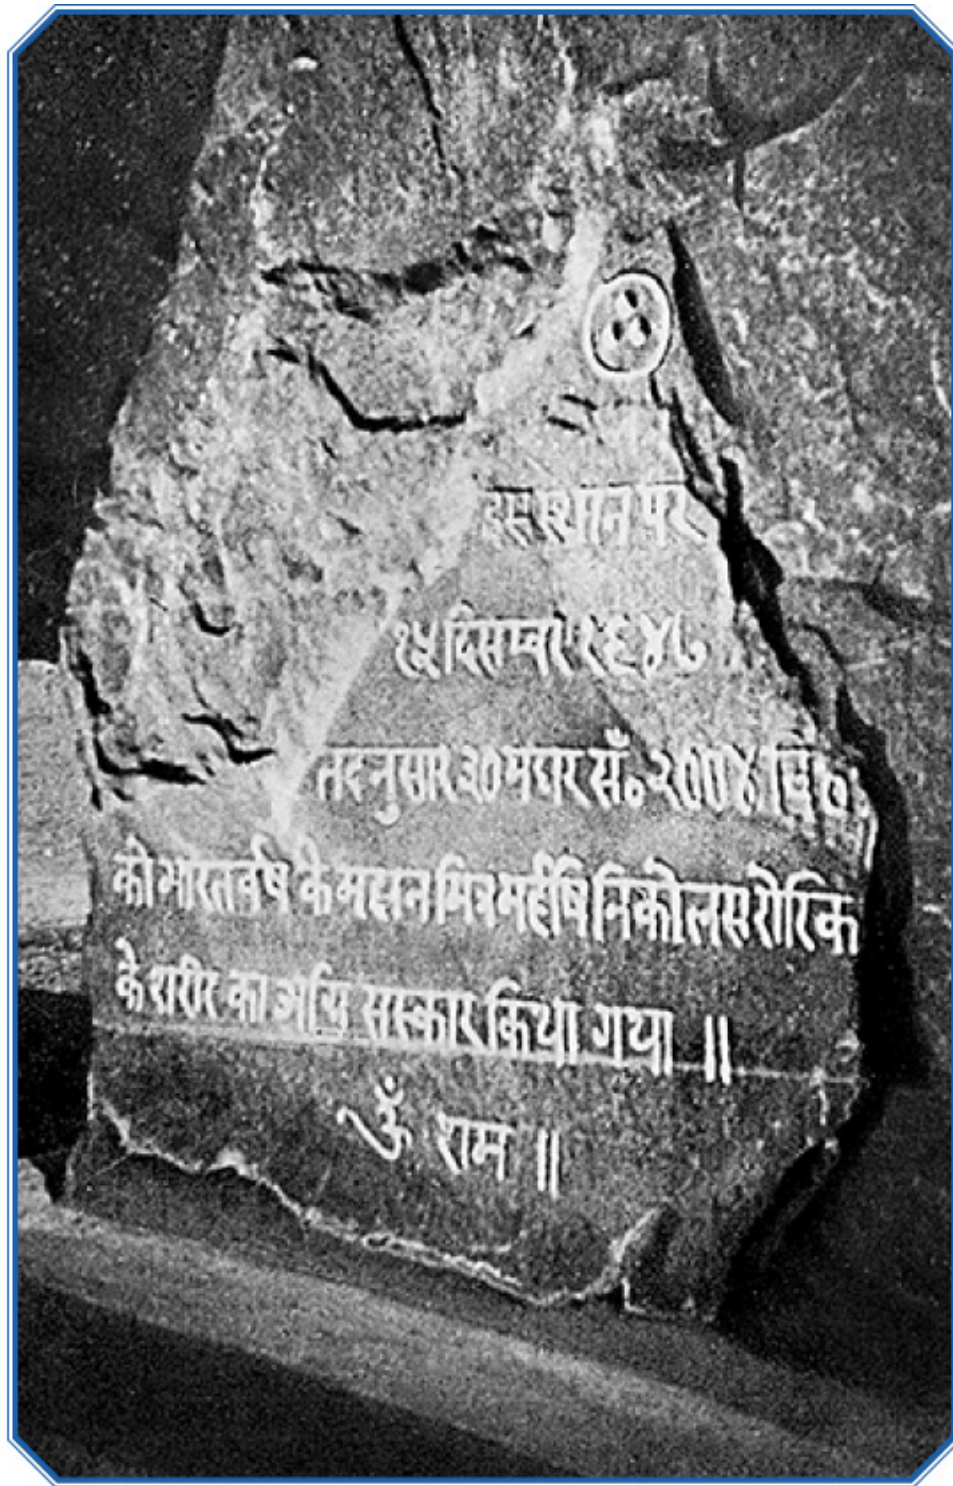 इस स्थान पर
१५ दिसम्बर १९४७
तदनुसार ३० मघर सँ० २००४ वि०
को भारतवर्ष के महान मित्र महर्षि निकोलस रोरिक
के शरीर का अग्नि संस्कार किया गया ॥
ॐ राम ॥